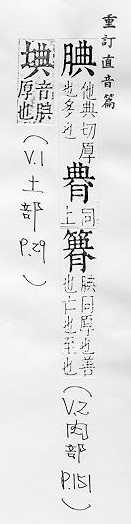 重訂直音篇
腆 他典切厚也多也 𦝫 同上 簭 腆同厚也善也亡也至也 (V.2 肉部 P.151)
㙉 音腆厚也 (V.1 土部 P.29)